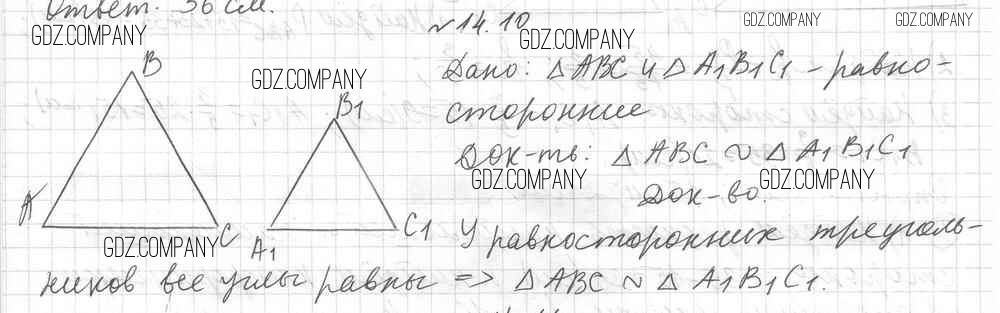 Ответ: 36 см.
GDZ.COMPANY
№14.10
GDZ.COMPANY
GDZ.COMPANY
GDZ.COMPANY
B
GDZ.COMPANY
B1
Дано: △ABC и △A1B1C1 - равно-
сторонние
Док-ть: △ABC ~ △A1B1C1
GDZ.COMPANY
GDZ.COMPANY
Док-во.
A
C
A1
C1
GDZ.COMPANY
У равносторонних треуголь-
ников все углы равны => △ABC ~ △A1B1C1.